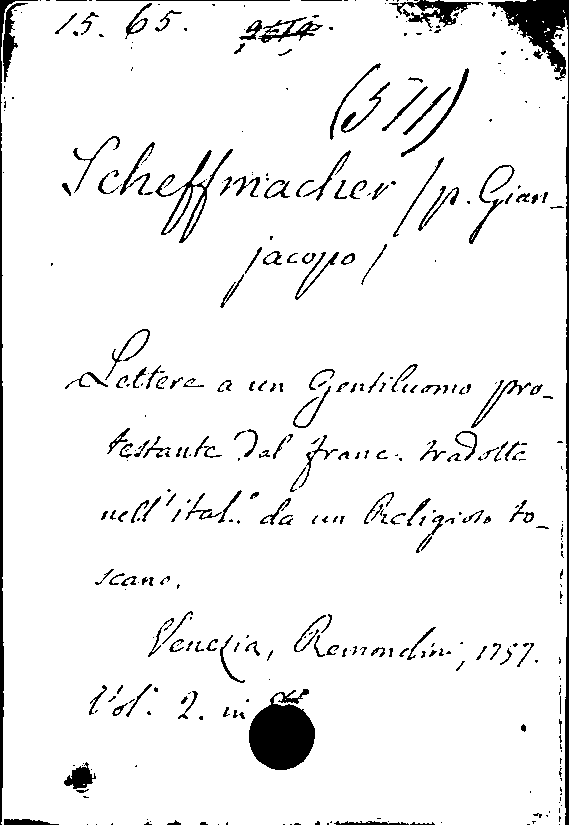 15. 65.
(571)
Scheffmacher / p. Gian-
jacopo /
Lettere a un Gentiluomo pro-
testante dal franc. tradotte
nell'ital.º da un Religioso to-
scano.
Venezia, Remondini, 1757.
Vol. 2. in